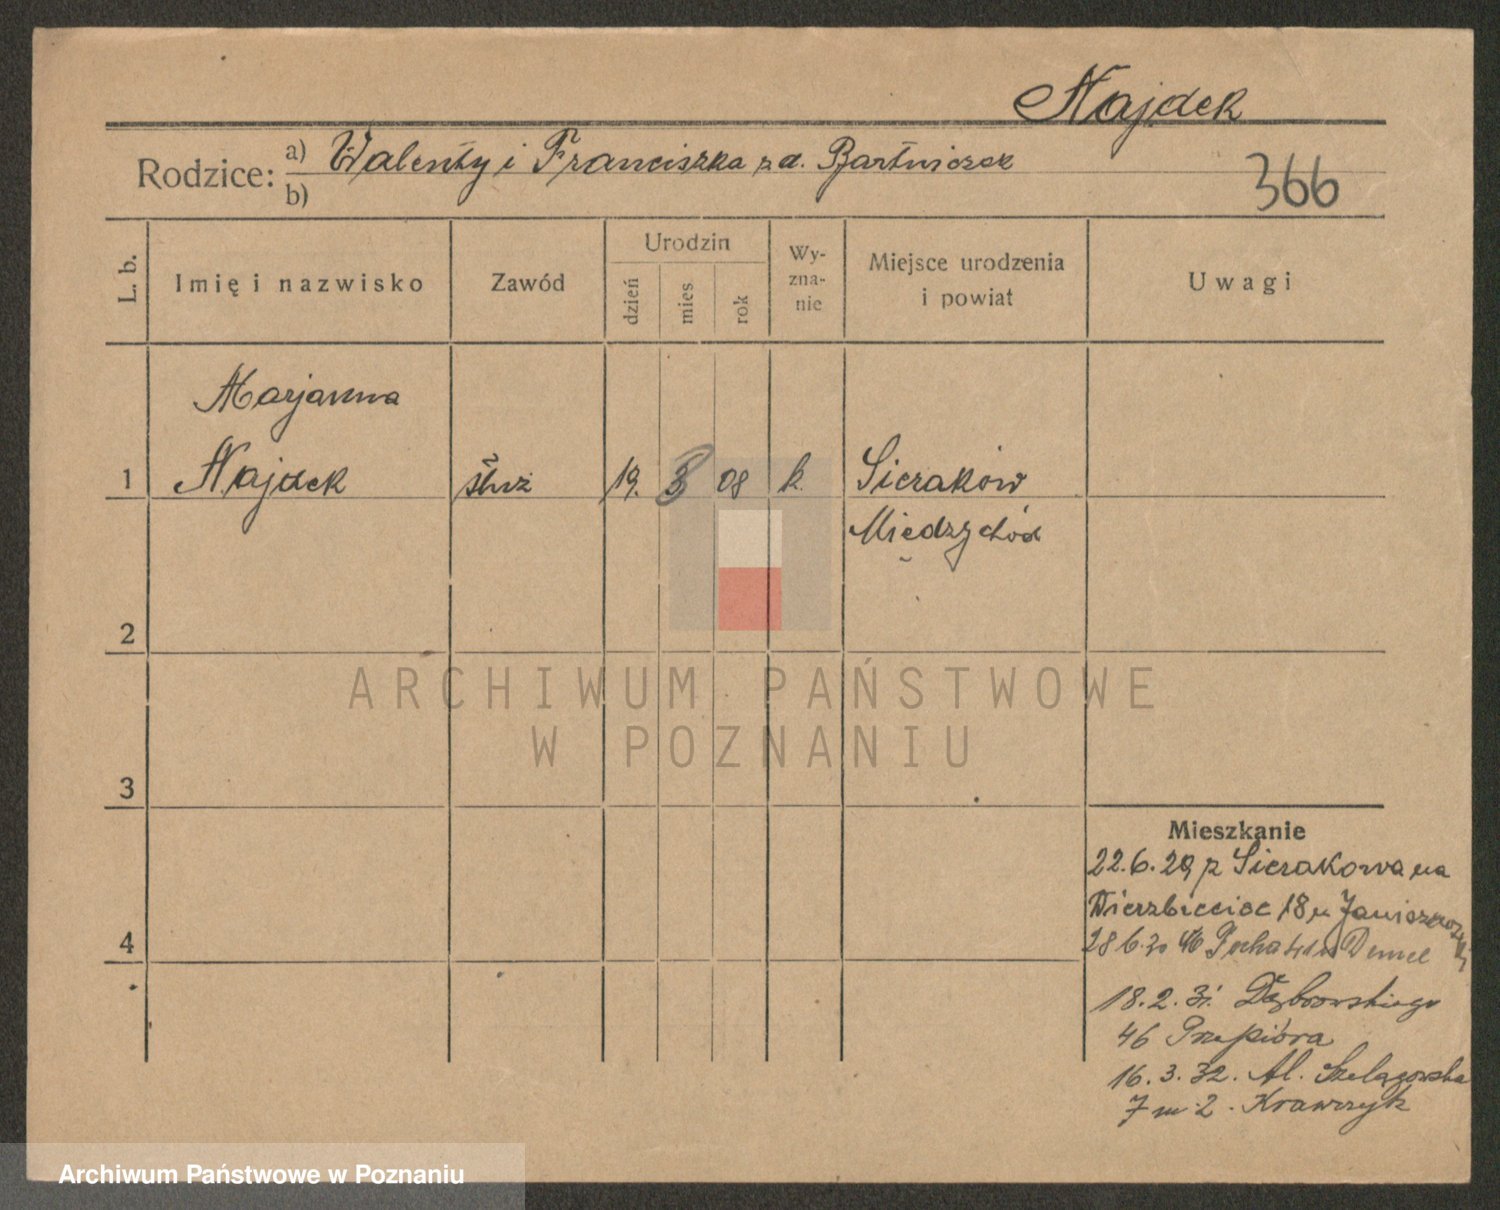 Najdek
Rodzice: a) Walenty i Franciszka z d. Bartniczak
b)
366
L. b.
Imię i nazwisko
Zawód
Urodzin
dzień
mies
rok
Wy-
zna-
nie
Miejsce urodzenia
i powiat
Uwagi
Marjanna
1 Najdek służ 19. 3 08 k. Sieraków
Międzychód
2
ARCHIWUM PAŃSTWOWE
W POZNANIU
3
Mieszkanie
22.6.29 z Sierakowa na
Wierzbięcice 18 u Janiszewski
4
28 6.30 Pocha u
18.2.31. Dąbrowskiego
46 Przepióra
16.3.32. Al. Szelągowska
7 m 2. Krawczyk
Archiwum Państwowe w Poznaniu